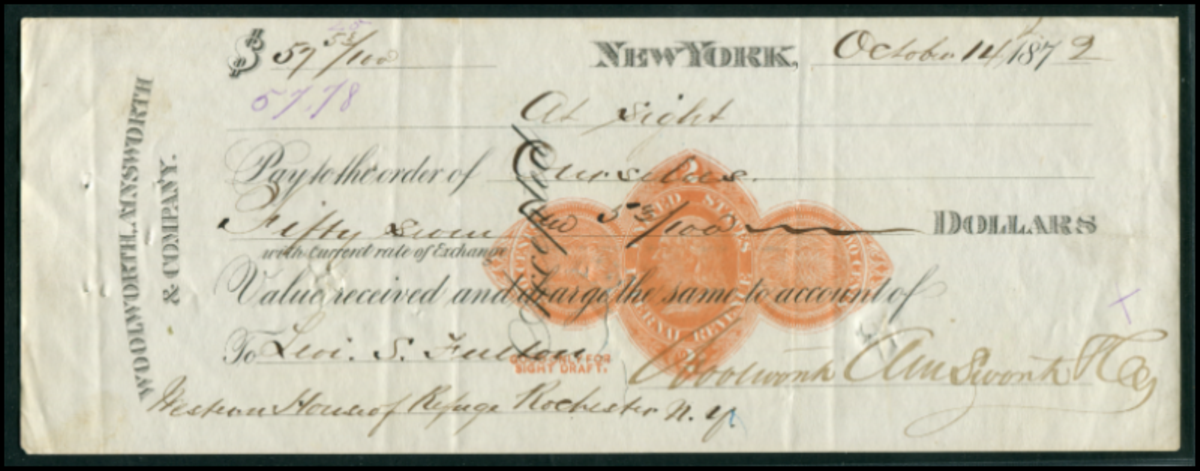 $ 57 58/100 NEW YORK, October 14 1872
57.78
At sight
Pay to the order of Ourselves.
Fifty seven 58/100 DOLLARS
with current rate of Exchange
Value received and charge the same to account of
To Levi. S. Fulton
Woolworth Ainsworth & Co
Western House of Refuge Rochester N.Y.
WOOLWORTH, AINSWORTH
& COMPANY.
UNITED STATES
INTERNAL REVENUE
TWO CENTS
GOOD ONLY FOR
SIGHT DRAFT.